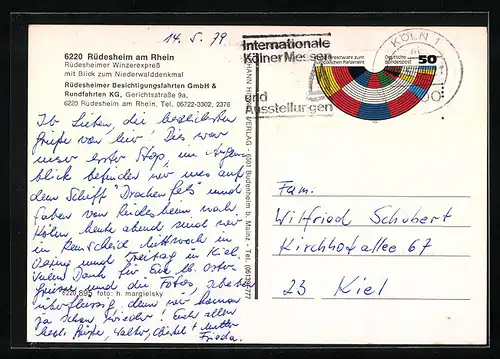 14. 5. 79
6220 Rüdesheim am Rhein
Rüdesheimer Winzerexpreß
mit Blick zum Niederwalddenkmal
Rüdesheimer Besichtigungsfahrten GmbH &
Rundfahrten KG, Gerichtsstraße 9a,
6220 Rüdesheim am Rhein, Tel. 06722-3302, 2376
Ihr Lieben, die herzlichsten
Grüße von hier! Dies war
unser erster Stop, im Augen-
blick befinden wir uns auf
dem Schiff "Drachenfels" und
fahren von Rüdesheim nach
Köln, heute abend sind wir
in Remscheid, Mittwoch in
und Freitag in Kiel.
Vielen Dank für Eure lb. Oster-
grüße und die Fotos,
überflüssig, denn wir kennen
ja schon wieder! Euch allen
beste Grüße, Walter, + Mutter
Frieda.
6220 895 foto: h. margielsky
VERLAG - 6501 Budenheim b. Mainz - Tel.
Internationale
Kölner Messen
und
Ausstellungen
KÖLN 1
Deutsche
Bundespost
50
Fam.
Wilfried Schubert
Kirchhofallee 67
23 Kiel